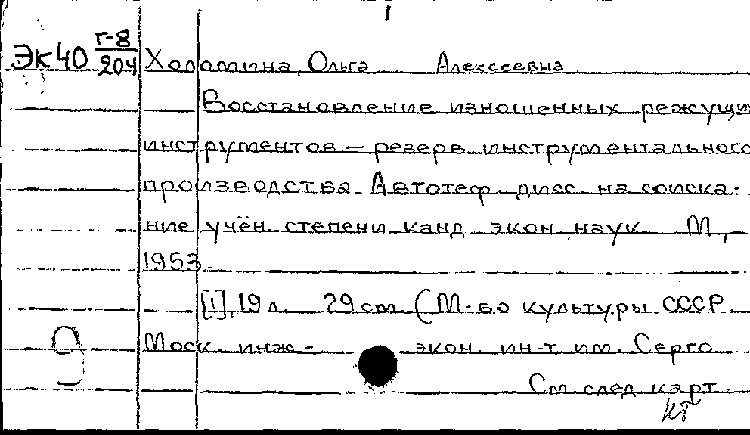 I
Эк40 Г-8/204 Холомина, Ольга Алексеевна
Восстановление изношенных режущих
инструментов – резерв инструментального
производства. Автореф. дисс. на соиска-
ние учён. степени канд. экон. наук. М.,
1953.
[1], 19 л. 29 см. (М-во культуры СССР.
9 Моск. инж.- экон. ин-т им. Серго
См. след. карт.
КГ